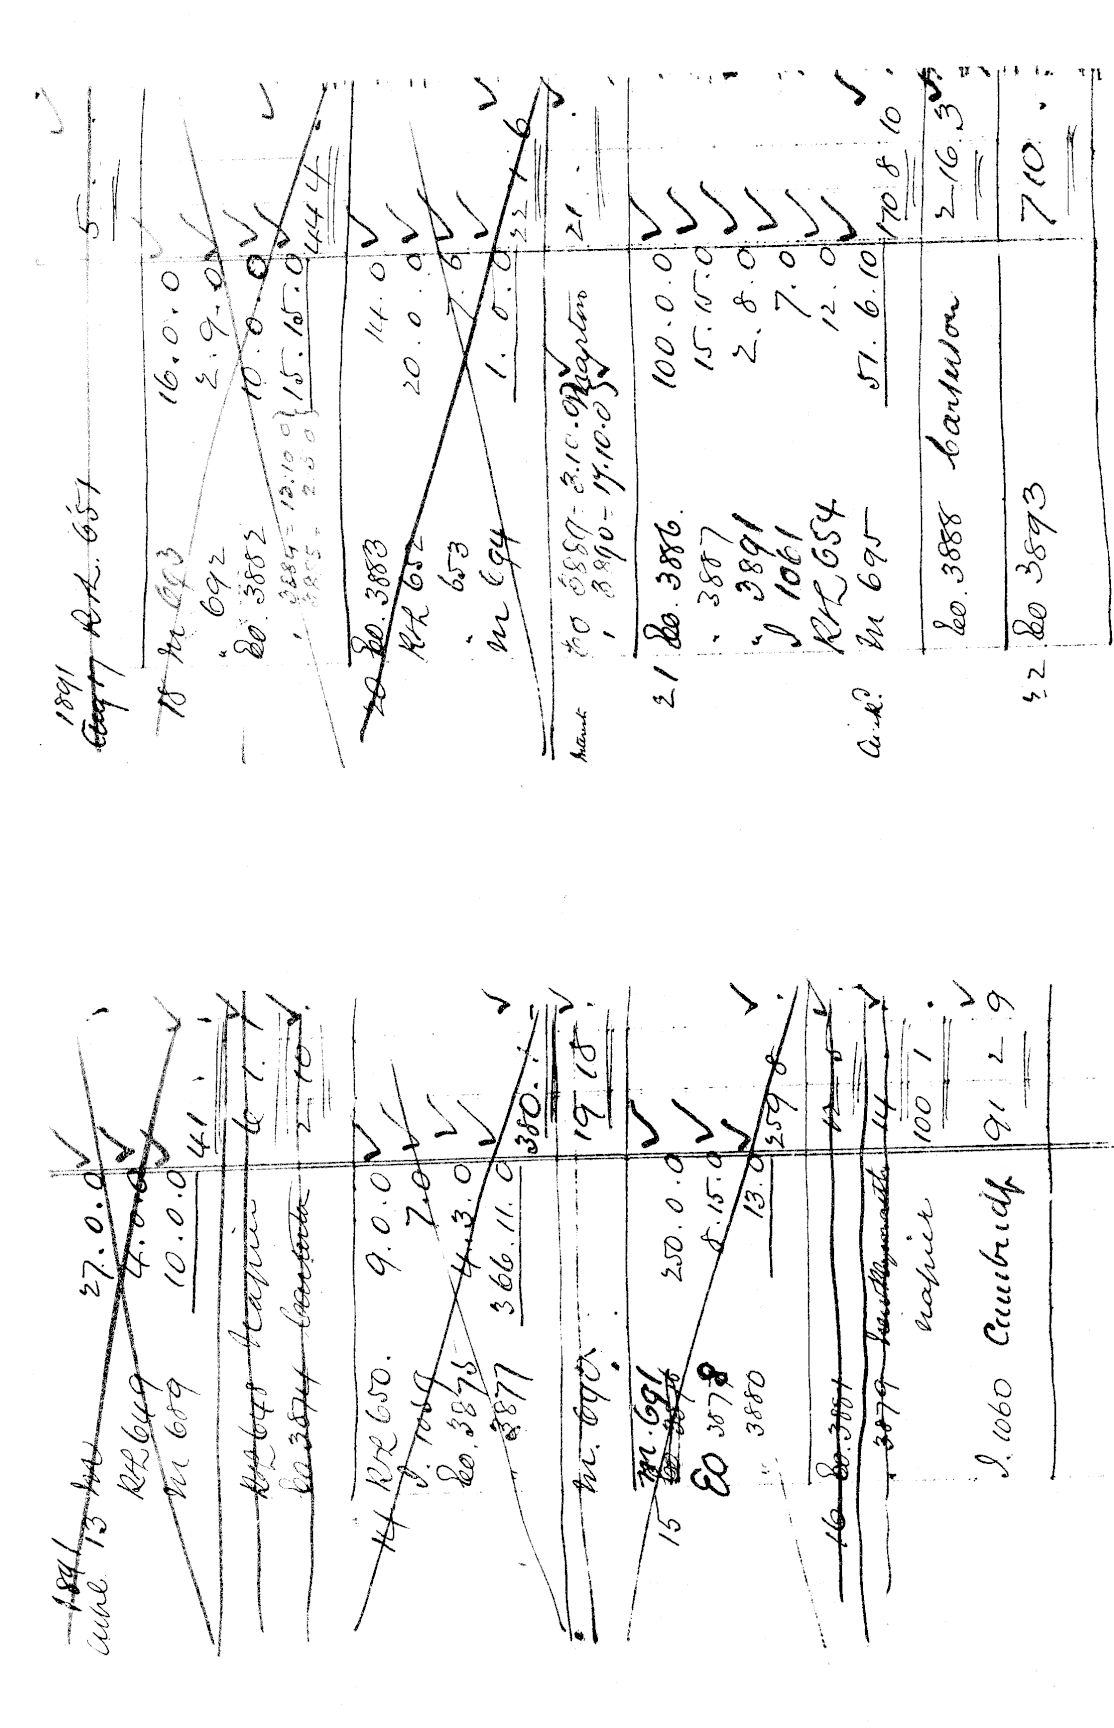 1891
13 M 27.0.0
RHL 649 4.0.0
M 689 10.0.0
41
RHL 648 Napier 6 1 1
Eo. 3874 2 10
14 RHL 650. 9.0.0
J. 1059 7.0
Eo. 3875 4.3.0
3877 366.11.0
380.1
M. 690. 19 18
15 M. 691 250.0.0
EO 3878 8.15.0
3880 13.0
259 8
16 Eo. 3881
3879 14
Napier 100 1
J. 1060 Cambridge 91 2 9
1891
Aug 17 RHL. 651 5
18 M 693 16.0.0
" 692 2.9.0
Eo. 3882 10.0.0
15.15.0
44 4
20 Eo. 3883 14.0
RHL 652 20.0.0
" 653 7.6
M 694 1.0.0
22 1 6
Eo 3889 - 3.10.0 Marton
" 3890 - 17.10.0
21
21 Eo. 3886. 100.0.0
" 3887 15.15.0
" 3891 2.8.0
J 1061 7.0
RHL 654 12.0
M 695 51.6.10
170 8 10
Eo. 3888 Carterton 2-16.3
22 Eo 3893 7 10